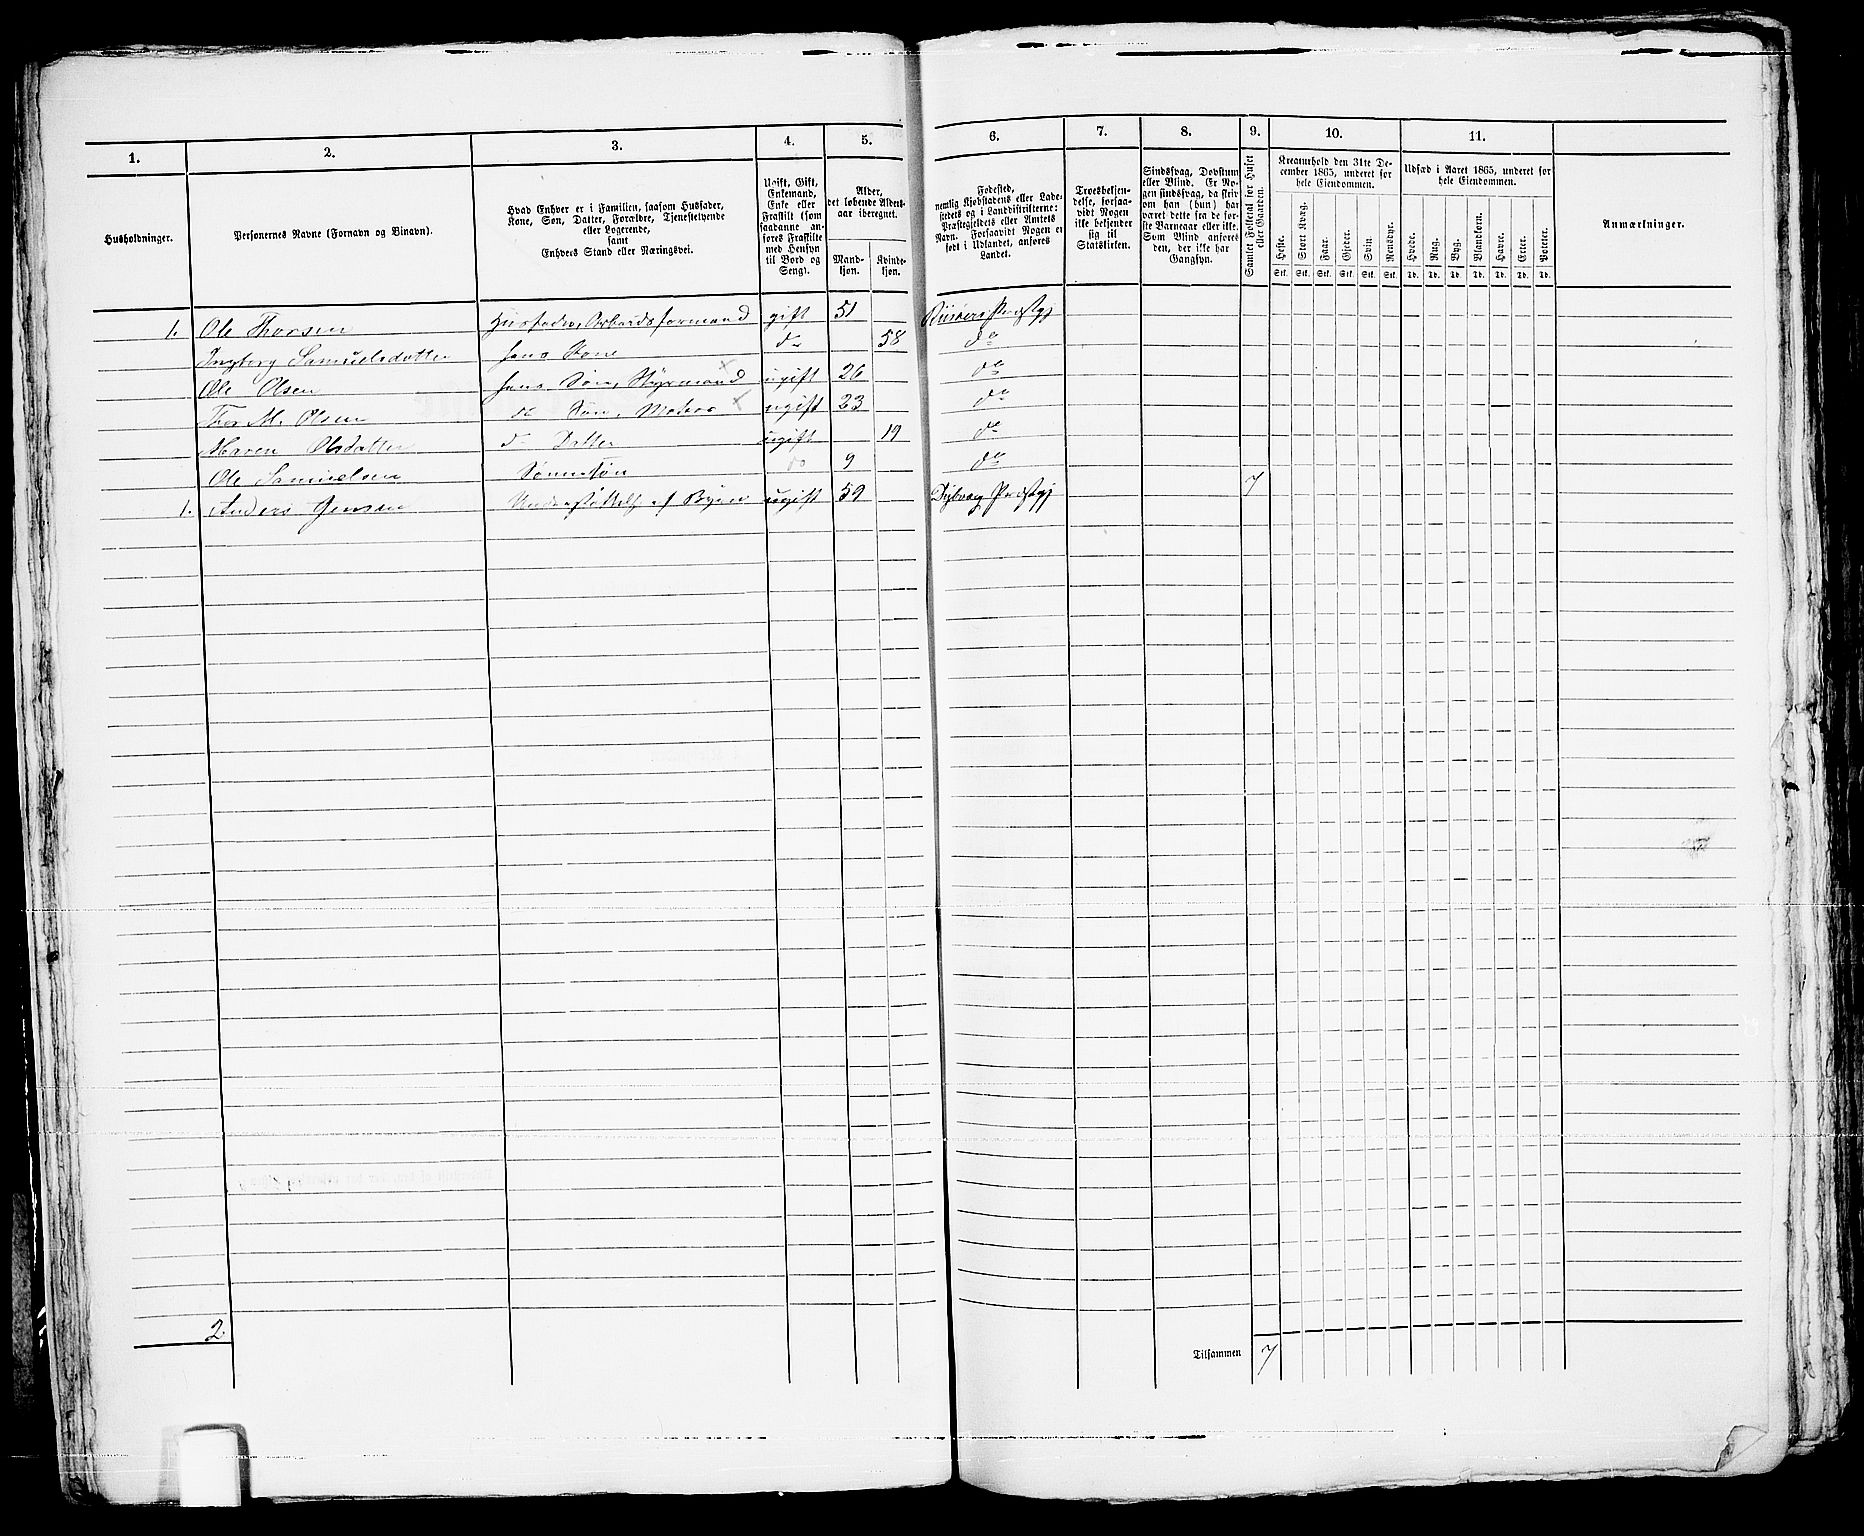 1. 2. 3. 4. 5. 6. 7. 8. 9. 10. 11.
Husholdninger.
Personernes Navne (Fornavn og Binavn).
Hvad Enhver er i Familien, saasom Husfader,
Kone, Søn, Datter, Forældre, Tjenestetyende
eller Logerende,
samt
Enhvers Stand eller Næringsvei.
Ugift, Gift,
Enkemand,
Enke eller
Fraskilt (som
saadanne an-
føres Fraskilte
med Hensyn
til Bord og
Seng).
Alder,
det løbende Alders-
aar iberegnet.
Mand-
kjøn.
Kvinde-
kjøn.
Fødested,
nemlig Kjøbstadens eller Lade-
stedets og i Landdistrikterne:
Præstegjeldets eller Amtets
Navn. Forsaavidt Nogen er
født i Udlandet, anføres
Landet.
Troesbekjen-
delse, forsaa-
vidt Nogen
ikke bekjender
sig til
Statskirken.
Sindssvag, Døvstum
eller Blind. Er No-
gen sindssvag, da skriv
om han (hun) har
været dette fra de før-
ste Barneaar eller ikke.
Som Blind anføres
den, der ikke har
Gangsyn.
Samlet Folketal for Huset
eller Gaarden.
Kreaturhold den 31te De-
cember 1865, underet for
hele Eiendommen.
Heste. Stort Kvæg. Faar. Gjeder. Svin. Rensdyr.
Stk. Stk. Stk. Stk. Stk. Stk.
Udsæd i Aaret 1865, underet for
hele Eiendommen.
Hvede. Rug. Byg. Blandkorn. Havre. Erter. Poteter.
Td. Td. Td. Td. Td. Td. Td.
Anmærkninger.
1. Ole Thorsen Husfader, Arbeidsformand gift 51 Riisøers Præstgj
Ingborg Samuelsdatter hans Kone do 58 do
Ole Olsen hans Søn, Styrmand × ugift 26 do
Thor M. Olsen do Søn, Matros × ugift 23 do
Maren Olsdatter do Datter ugift 19 do
Ole Samuelsen Sønnesøn do 9 do
1. Anders Jensen Understøttelse af Byen ugift 59 Dybvag Præstgj 7
2.
Tilsammen 7